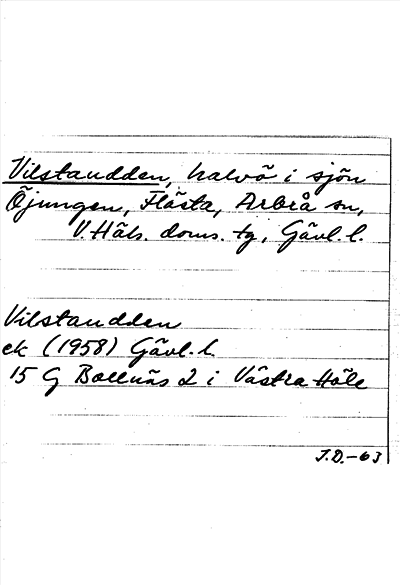 Vilstaudden, halvö i sjön
Öjungen, Flästa, Arbrå sn,
V. Häls. doms. tg, Gävl. l.
Vilstaudden
ek (1958) Gävl. l.
15 G Bollnäs 2 i Västra Höle
J.D.-63